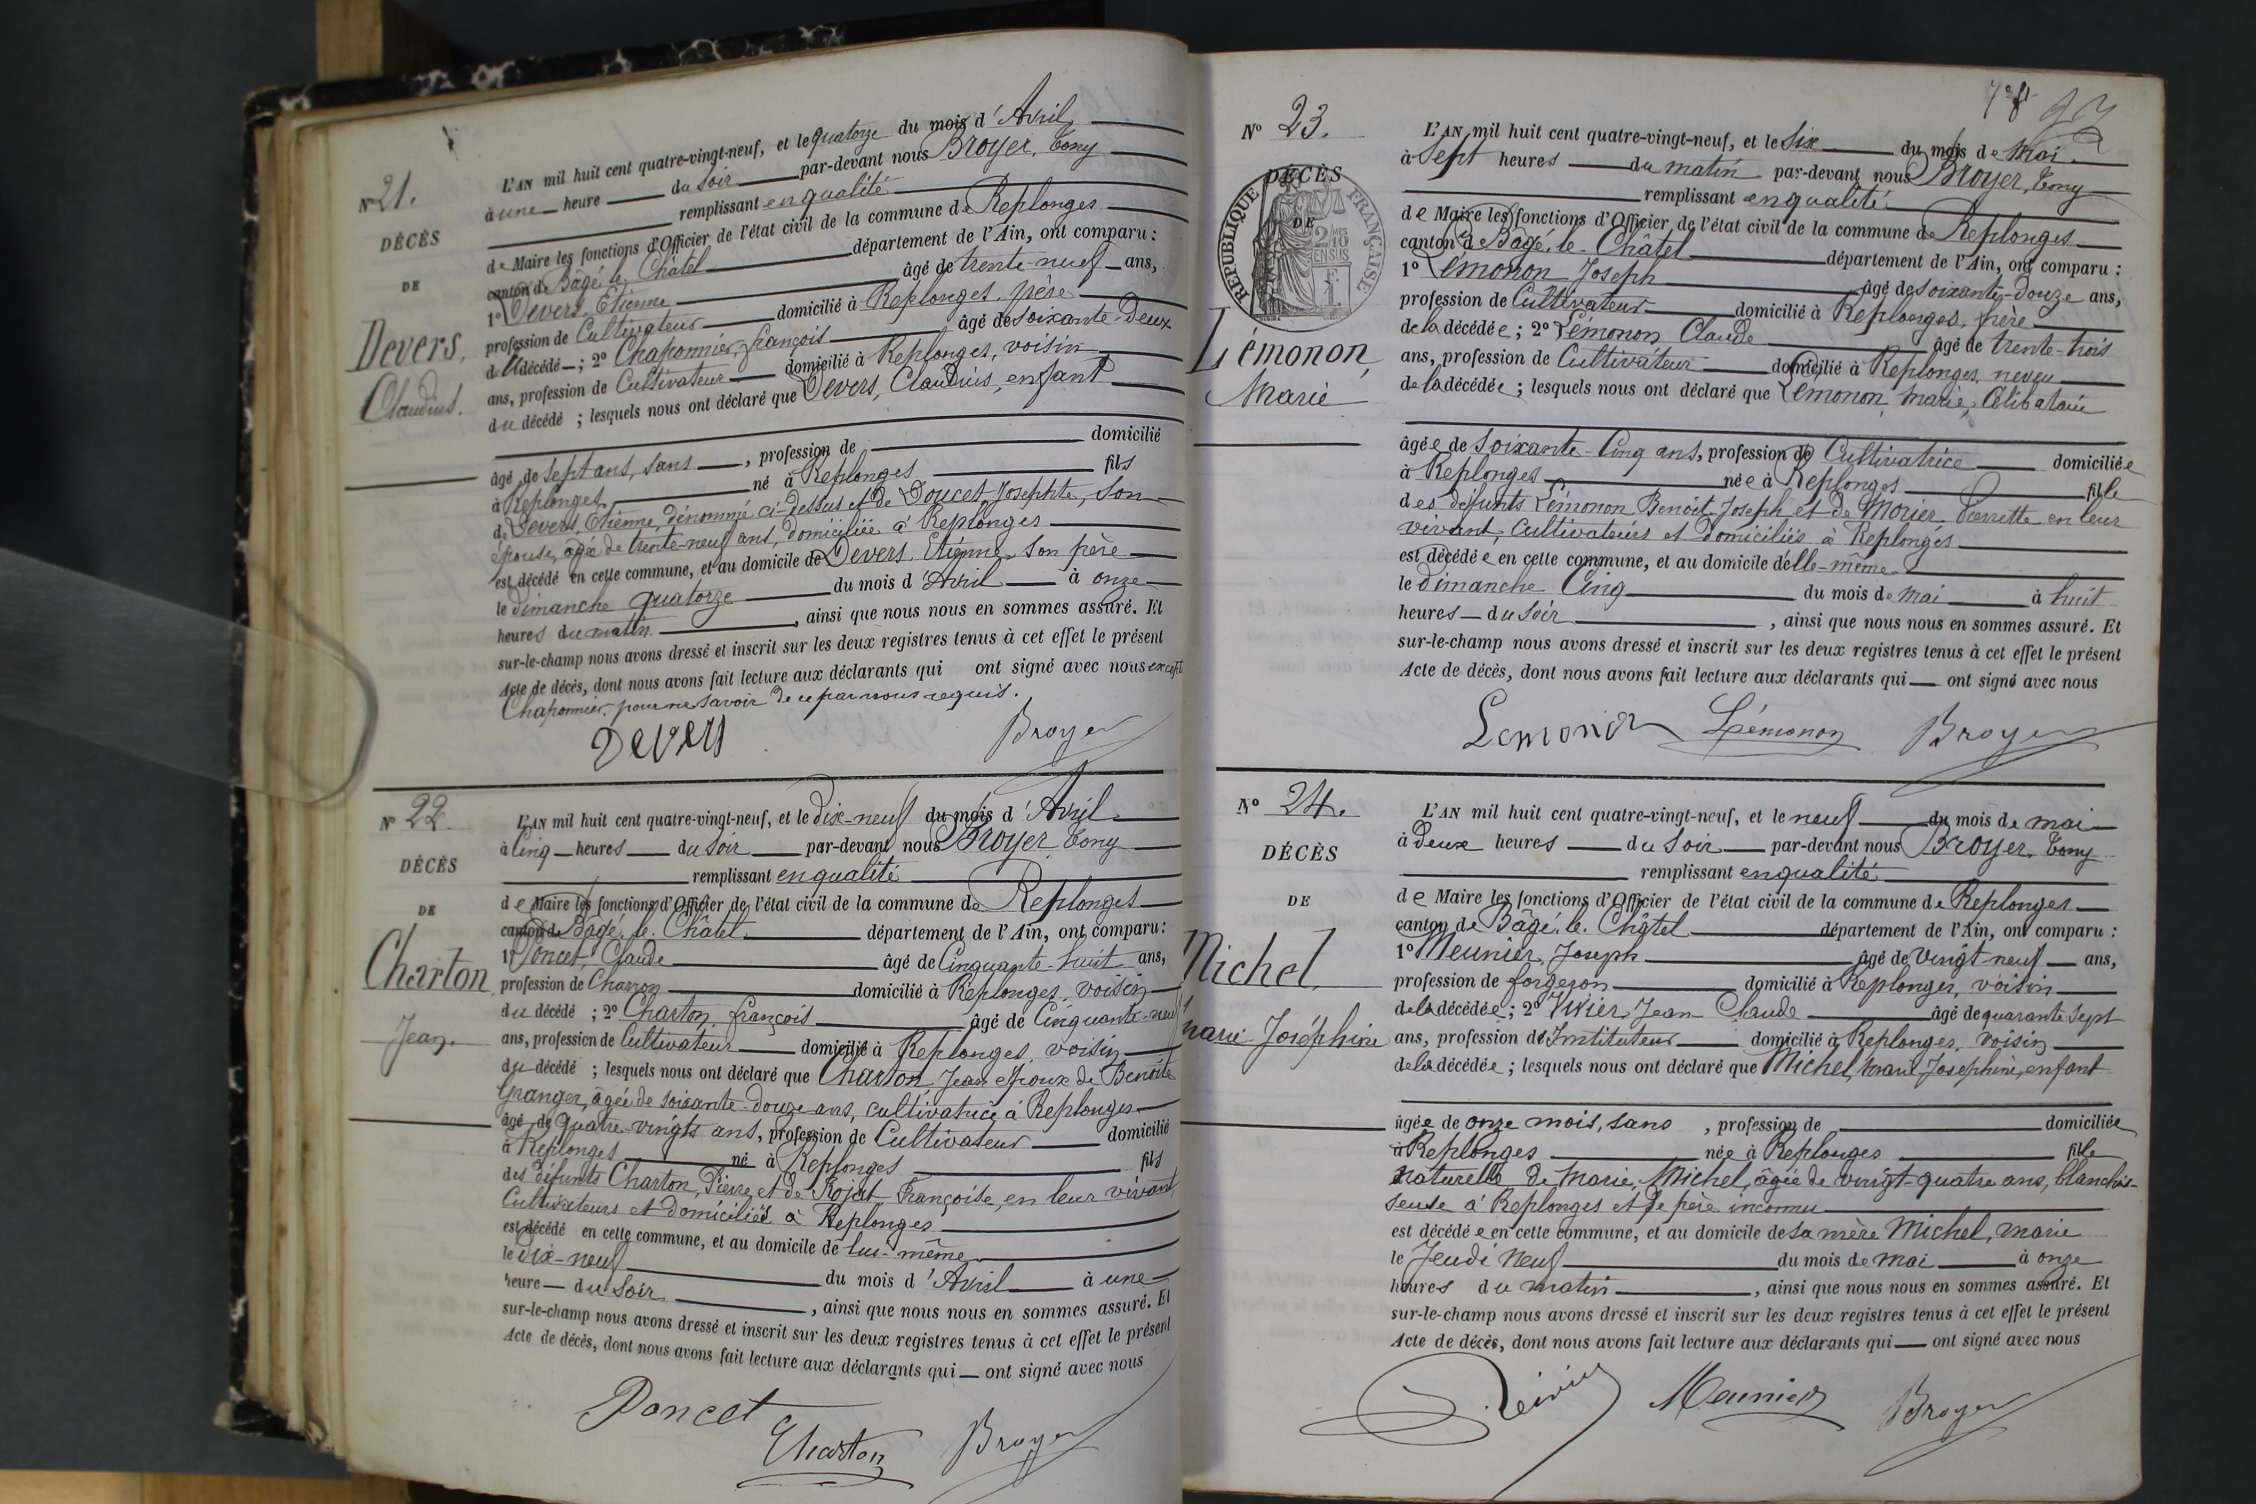 N° 21.
DÉCÈS
DE
Devers,
Claudius.
L'AN mil huit cent quatre-vingt-neuf, et le quatorze du mois d'Avril
à une heure du soir par-devant nous Broyer, Tony
remplissant en qualité
de Maire les fonctions d'Officier de l'état civil de la commune de Replonges
canton de Bâgé-le-Châtel département de l'Ain, ont comparu :
1° Devers, Etienne âgé de trente-neuf ans,
profession de Cultivateur domicilié à Replonges, père
du décédé ; 2° Chaponnier, françois âgé de soixante-deux
ans, profession de Cultivateur domicilié à Replonges, voisin
du décédé ; lesquels nous ont déclaré que Devers, Claudius, enfant
âgé de sept ans, sans , profession de domicilié
à Replonges, né à Replonges fils
de Devers, Etienne, dénommé ci-dessus et de Doucet Josephte, son
épouse, agée de trente-neuf ans, domiciliée à Replonges
est décédé en cette commune, et au domicile de Devers, Etienne, son père
le dimanche quatorze du mois d'Avril à onze
heures du matin , ainsi que nous nous en sommes assuré. Et
sur-le-champ nous avons dressé et inscrit sur les deux registres tenus à cet effet le présent
Acte de décès, dont nous avons fait lecture aux déclarants qui ont signé avec nous excepté
Chaponnier, pour ne savoir de ce par nous requis.
Devers Broyer
N° 22
DÉCÈS
DE
Charton
Jean.
L'AN mil huit cent quatre-vingt-neuf, et le Dix-neuf du mois d'Avril
à Cinq heures du soir par-devant nous Broyer, Tony
remplissant en qualité
de Maire les fonctions d'Officier de l'état civil de la commune de Replonges
canton de Bâgé-le-Châtel département de l'Ain, ont comparu :
1° Poncet, Claude âgé de Cinquante-huit ans,
profession de Charron domicilié à Replonges, voisin
du décédé ; 2° Charton, françois âgé de Cinquante-neuf
ans, profession de Cultivateur domicilié à Replonges, voisin
du décédé ; lesquels nous ont déclaré que Charton, Jean époux de Benoîte
Granger, âgée de soixante-douze ans, cultivatrice à Replonges
âgé de quatre-vingts ans, profession de Cultivateur domicilié
à Replonges né à Replonges fils
des défunts Charton, Pierre et de Rojat Françoise, en leur vivant
Cultivateurs et domiciliés à Replonges
est décédé en cette commune, et au domicile de lui-même
le Dix-neuf du mois d'Avril à une
heure du soir , ainsi que nous nous en sommes assuré. Et
sur-le-champ nous avons dressé et inscrit sur les deux registres tenus à cet effet le présent
Acte de décès, dont nous avons fait lecture aux déclarants qui ont signé avec nous
Poncet
Charton Broyer
N° 23.
DÉCÈS
DE
RÉPUBLIQUE FRANÇAISE
2/10 EN SUS
1 F
Lémonon,
Marie
L'AN mil huit cent quatre-vingt-neuf, et le Six du mois de Mai
à Sept heures du matin par-devant nous Broyer, Tony
remplissant en qualité
de Maire les fonctions d'Officier de l'état civil de la commune de Replonges
canton de Bâgé-le-Châtel département de l'Ain, ont comparu :
1° Lémonon Joseph âgé de soixante-douze ans,
profession de Cultivateur domicilié à Replonges, frère
de la décédée ; 2° Lémonon Claude âgé de trente-trois
ans, profession de Cultivateur domicilié à Replonges, neveu
de la décédée ; lesquels nous ont déclaré que Lémonon, Marie, Célibataire
âgée de soixante-Cinq ans, profession de Cultivatrice domiciliée
à Replonges née à Replonges fille
des défunts Lémonon Benoit-Joseph et de Morier, Pierrette en leur
vivant, Cultivateurs et domiciliés à Replonges
est décédée en cette commune, et au domicile d'elle-même
le dimanche Cinq du mois de Mai à huit
heures du soir , ainsi que nous nous en sommes assuré. Et
sur-le-champ nous avons dressé et inscrit sur les deux registres tenus à cet effet le présent
Acte de décès, dont nous avons fait lecture aux déclarants qui ont signé avec nous
Lemonon Lémonon Broyer
N° 24.
DÉCÈS
DE
Michel
Marie-Joséphine
L'AN mil huit cent quatre-vingt-neuf, et le neuf du mois de mai
à Deux heures du soir par-devant nous Broyer, Tony
remplissant en qualité
de Maire les fonctions d'Officier de l'état civil de la commune de Replonges
canton de Bâgé-le-Châtel département de l'Ain, ont comparu :
1° Meunier, Joseph âgé de Vingt-neuf ans,
profession de forgeron domicilié à Replonges, voisin
de la décédée ; 2° Jean Claude âgé de quarante sept
ans, profession d'Instituteur domicilié à Replonges, voisin
de la décédée ; lesquels nous ont déclaré que Michel, Marie Josephine, enfant
âgée de onze mois, sans , profession de domiciliée
à Replonges née à Replonges fille
naturelle de Marie, Michel, âgée de vingt-quatre ans, blanchis-
seuse à Replonges et de père inconnu
est décédée en cette commune, et au domicile de sa mère Michel, Marie
le Jeudi Neuf du mois de mai à onze
heures du matin , ainsi que nous nous en sommes assuré. Et
sur-le-champ nous avons dressé et inscrit sur les deux registres tenus à cet effet le présent
Acte de décès, dont nous avons fait lecture aux déclarants qui ont signé avec nous
Meunier Broyer